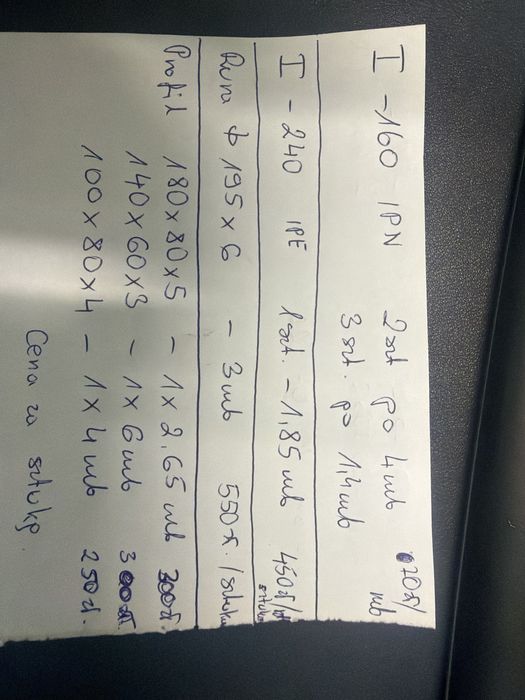 I - 160 IPN 2 szt po 4 mb 20zł/mb
3 szt. po 1,4 mb
I - 240 IPE 1 szt. - 1,85 mb 450zł/sztuka
Rura ϕ 195 x 6 - 3 mb 550zł./sztuka
Profil 180 x 80 x 5 - 1 x 2,65 mb 300zł.
140 x 60 x 3 - 1 x 6 mb 300zł.
100 x 80 x 4 - 1 x 4 mb 250zł.
Cena za sztukę.